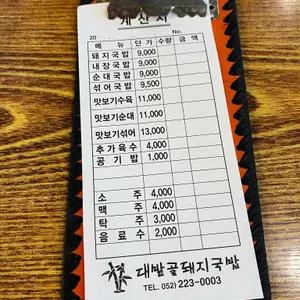 계산서
20 . . No.
메뉴 단가 수량 금액
돼지국밥 9,000
내장국밥 9,000
순대국밥 9,000
섞어국밥 9,500
맛보기수육 11,000
맛보기순대 11,000
맛보기섞어 13,000
추가육수 4,000
공기밥 1,000
소주 4,000
맥주 4,000
탁주 3,000
음료수 2,000
대밭골돼지국밥
TEL. 052) 223-0003